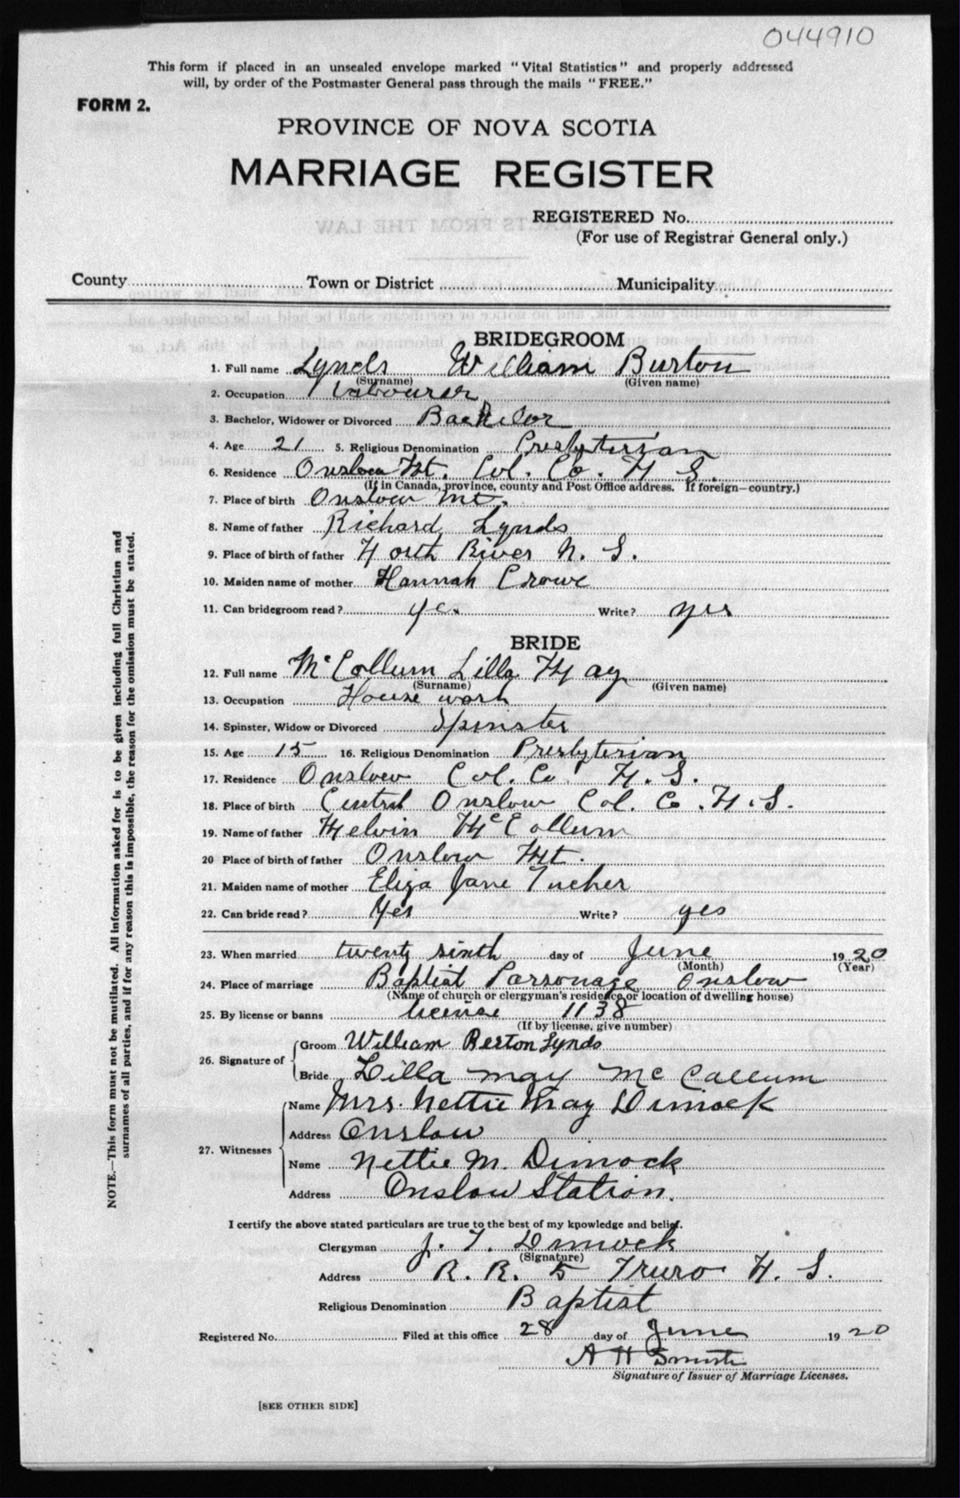 044910
This form if placed in an unsealed envelope marked "Vital Statistics" and properly addressed
will, by order of the Postmaster General pass through the mails "FREE."
FORM 2.
PROVINCE OF NOVA SCOTIA
MARRIAGE REGISTER
REGISTERED No.
(For use of Registrar General only.)
County Town or District Municipality
BRIDEGROOM
1. Full name Lynds William Burton
(Surname) (Given name)
2. Occupation Labourer
3. Bachelor, Widower or Divorced Bachelor
4. Age 21 5. Religious Denomination Presbyterian
6. Residence Onslow Mt. Col. Co. N. S.
(If in Canada, province, county and Post Office address. If foreign—country.)
7. Place of birth Onslow Mt.
8. Name of father Richard Lynds
9. Place of birth of father North River N. S.
10. Maiden name of mother Hannah Crowe
11. Can bridegroom read? yes Write? yes
BRIDE
12. Full name McCollum Lilla May
(Surname) (Given name)
13. Occupation House work
14. Spinster, Widow or Divorced Spinster
15. Age 15 16. Religious Denomination Presbyterian
17. Residence Onslow Col. Co. N. S.
18. Place of birth Central Onslow Col. Co. N. S.
19. Name of father Melvin McCollum
20 Place of birth of father Onslow Mt.
21. Maiden name of mother Eliza Jane Tucker
22. Can bride read? Yes Write? yes
23. When married twenty sixth day of June 1920
(Month) (Year)
24. Place of marriage Baptist Parsonage Onslow
(Name of church or clergyman's residence or location of dwelling house)
25. By license or banns license 1138
(If by license, give number)
26. Signature of Groom William Berton Lynds
Bride Lilla may mc Callum
27. Witnesses Name Mrs. Nettie May Dimock
Address Onslow
Name Nettie M. Dimock
Address Onslow Station.
I certify the above stated particulars are true to the best of my knowledge and belief.
Clergyman J. T. Dimock
(Signature)
Address R. R. 5 Truro N. S.
Religious Denomination Baptist
Registered No. Filed at this office 28 day of June 1920
A H Smith
Signature of Issuer of Marriage Licenses.
[SEE OTHER SIDE]
NOTE.—This form must not be mutilated. All information asked for is to be given including full Christian and
surnames of all parties, and if for any reason this is impossible, the reason for the omission must be stated.